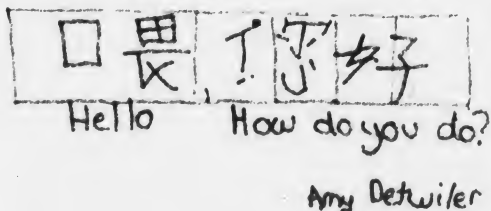 喂,您好
Hello How do you do?
Amy Detwiler